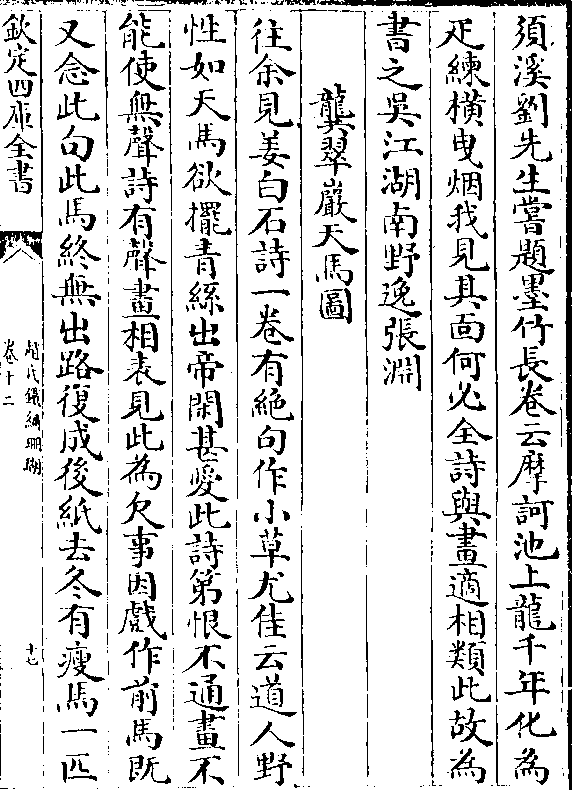 須溪劉先生嘗題墨竹長卷云摩訶池上龍千年化為
疋練横曳烟我見其面何必全詩與畫適相類此故為
書之吳江湖南野逸張淵
龔翠巖天馬圖
往余見姜白石詩一卷有絶句作小草尤佳云道人野
性如天馬欲擺青絲出帝閑甚愛此詩第恨不通畫不
能使無聲詩有聲畫相表見此為欠事因戲作前馬既
又念此句此馬終無出路復成後紙去冬有瘦馬一匹
欽定四庫全書
趙氏鐵網珊瑚
卷十二
十七